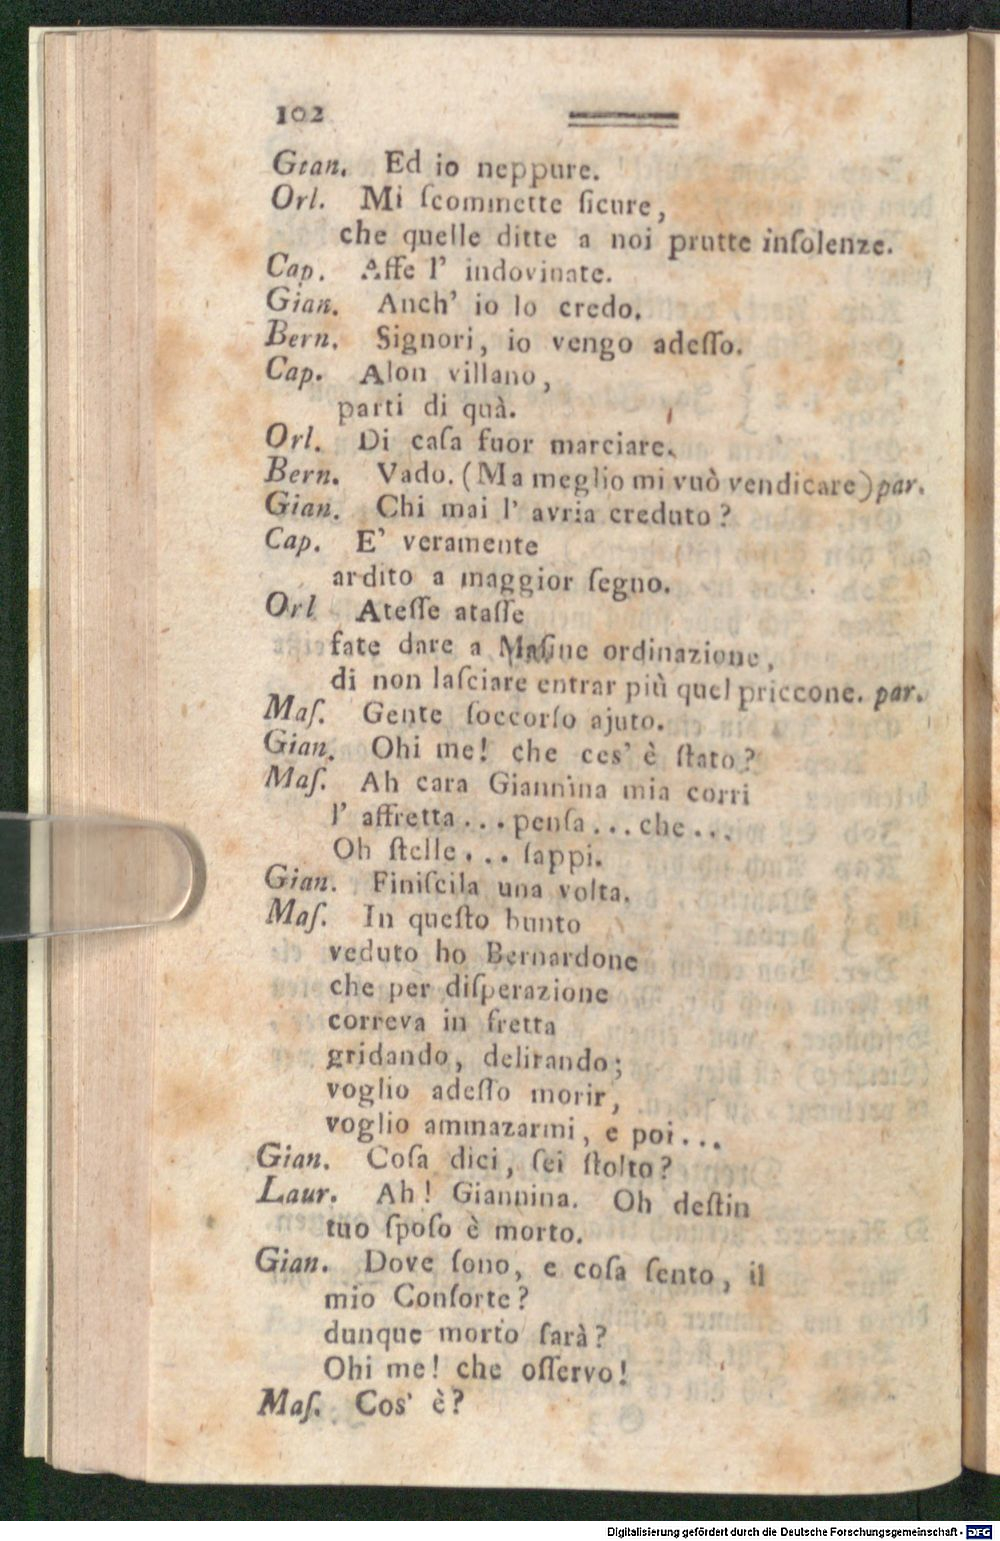 102
Gian. Ed io neppure.
Orl. Mi ſcommette ſicure,
che quelle ditte a noi prutte inſolenze.
Cap. Affe l' indovinate.
Gian. Anch' io lo credo.
Bern. Signori, io vengo adeſſo.
Cap. Alon villano,
parti di quà.
Orl. Di caſa fuor marciare.
Bern. Vado. (Ma meglio mi vuò vendicare) par.
Gian. Chi mai l' avria creduto?
Cap. E' veramente
ardito a maggior ſegno.
Orl Ateſſe ataſſe
fate dare a Maſine ordinazione,
di non laſciare entrar più quel priccone. par.
Maſ. Gente ſoccorſo ajuto.
Gian. Ohi me! che ces' è ſtato?
Maſ. Ah cara Giannina mia corri
l' affretta... penſa... che...
Oh ſtelle... ſappi.
Gian. Finiſcila una volta.
Maſ. In queſto bunto
veduto ho Bernardone
che per diſperazione
correva in fretta
gridando, delirando;
voglio adeſſo morir,
voglio ammazarmi, e poi...
Gian. Coſa dici, ſei ſtolto?
Laur. Ah! Giannina. Oh deſtin
tuo ſpoſo è morto.
Gian. Dove ſono, e coſa ſento, il
mio Conſorte?
dunque morto ſarà?
Ohi me! che oſſervo!
Maſ. Cos' è?
Digitalisierung gefördert durch die Deutsche Forschungsgemeinschaft - DFG